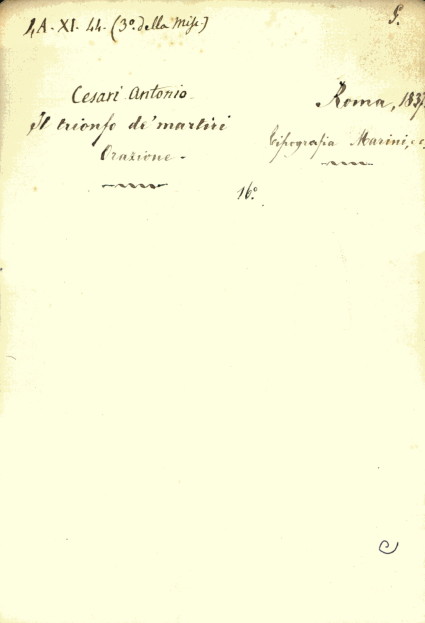 1,A-XI-44-(3º della Misc.)
G.
Cesari Antonio.
Il trionfo de' martiri
Orazione -
Roma, 1837
Tipografia Marini,
16º.